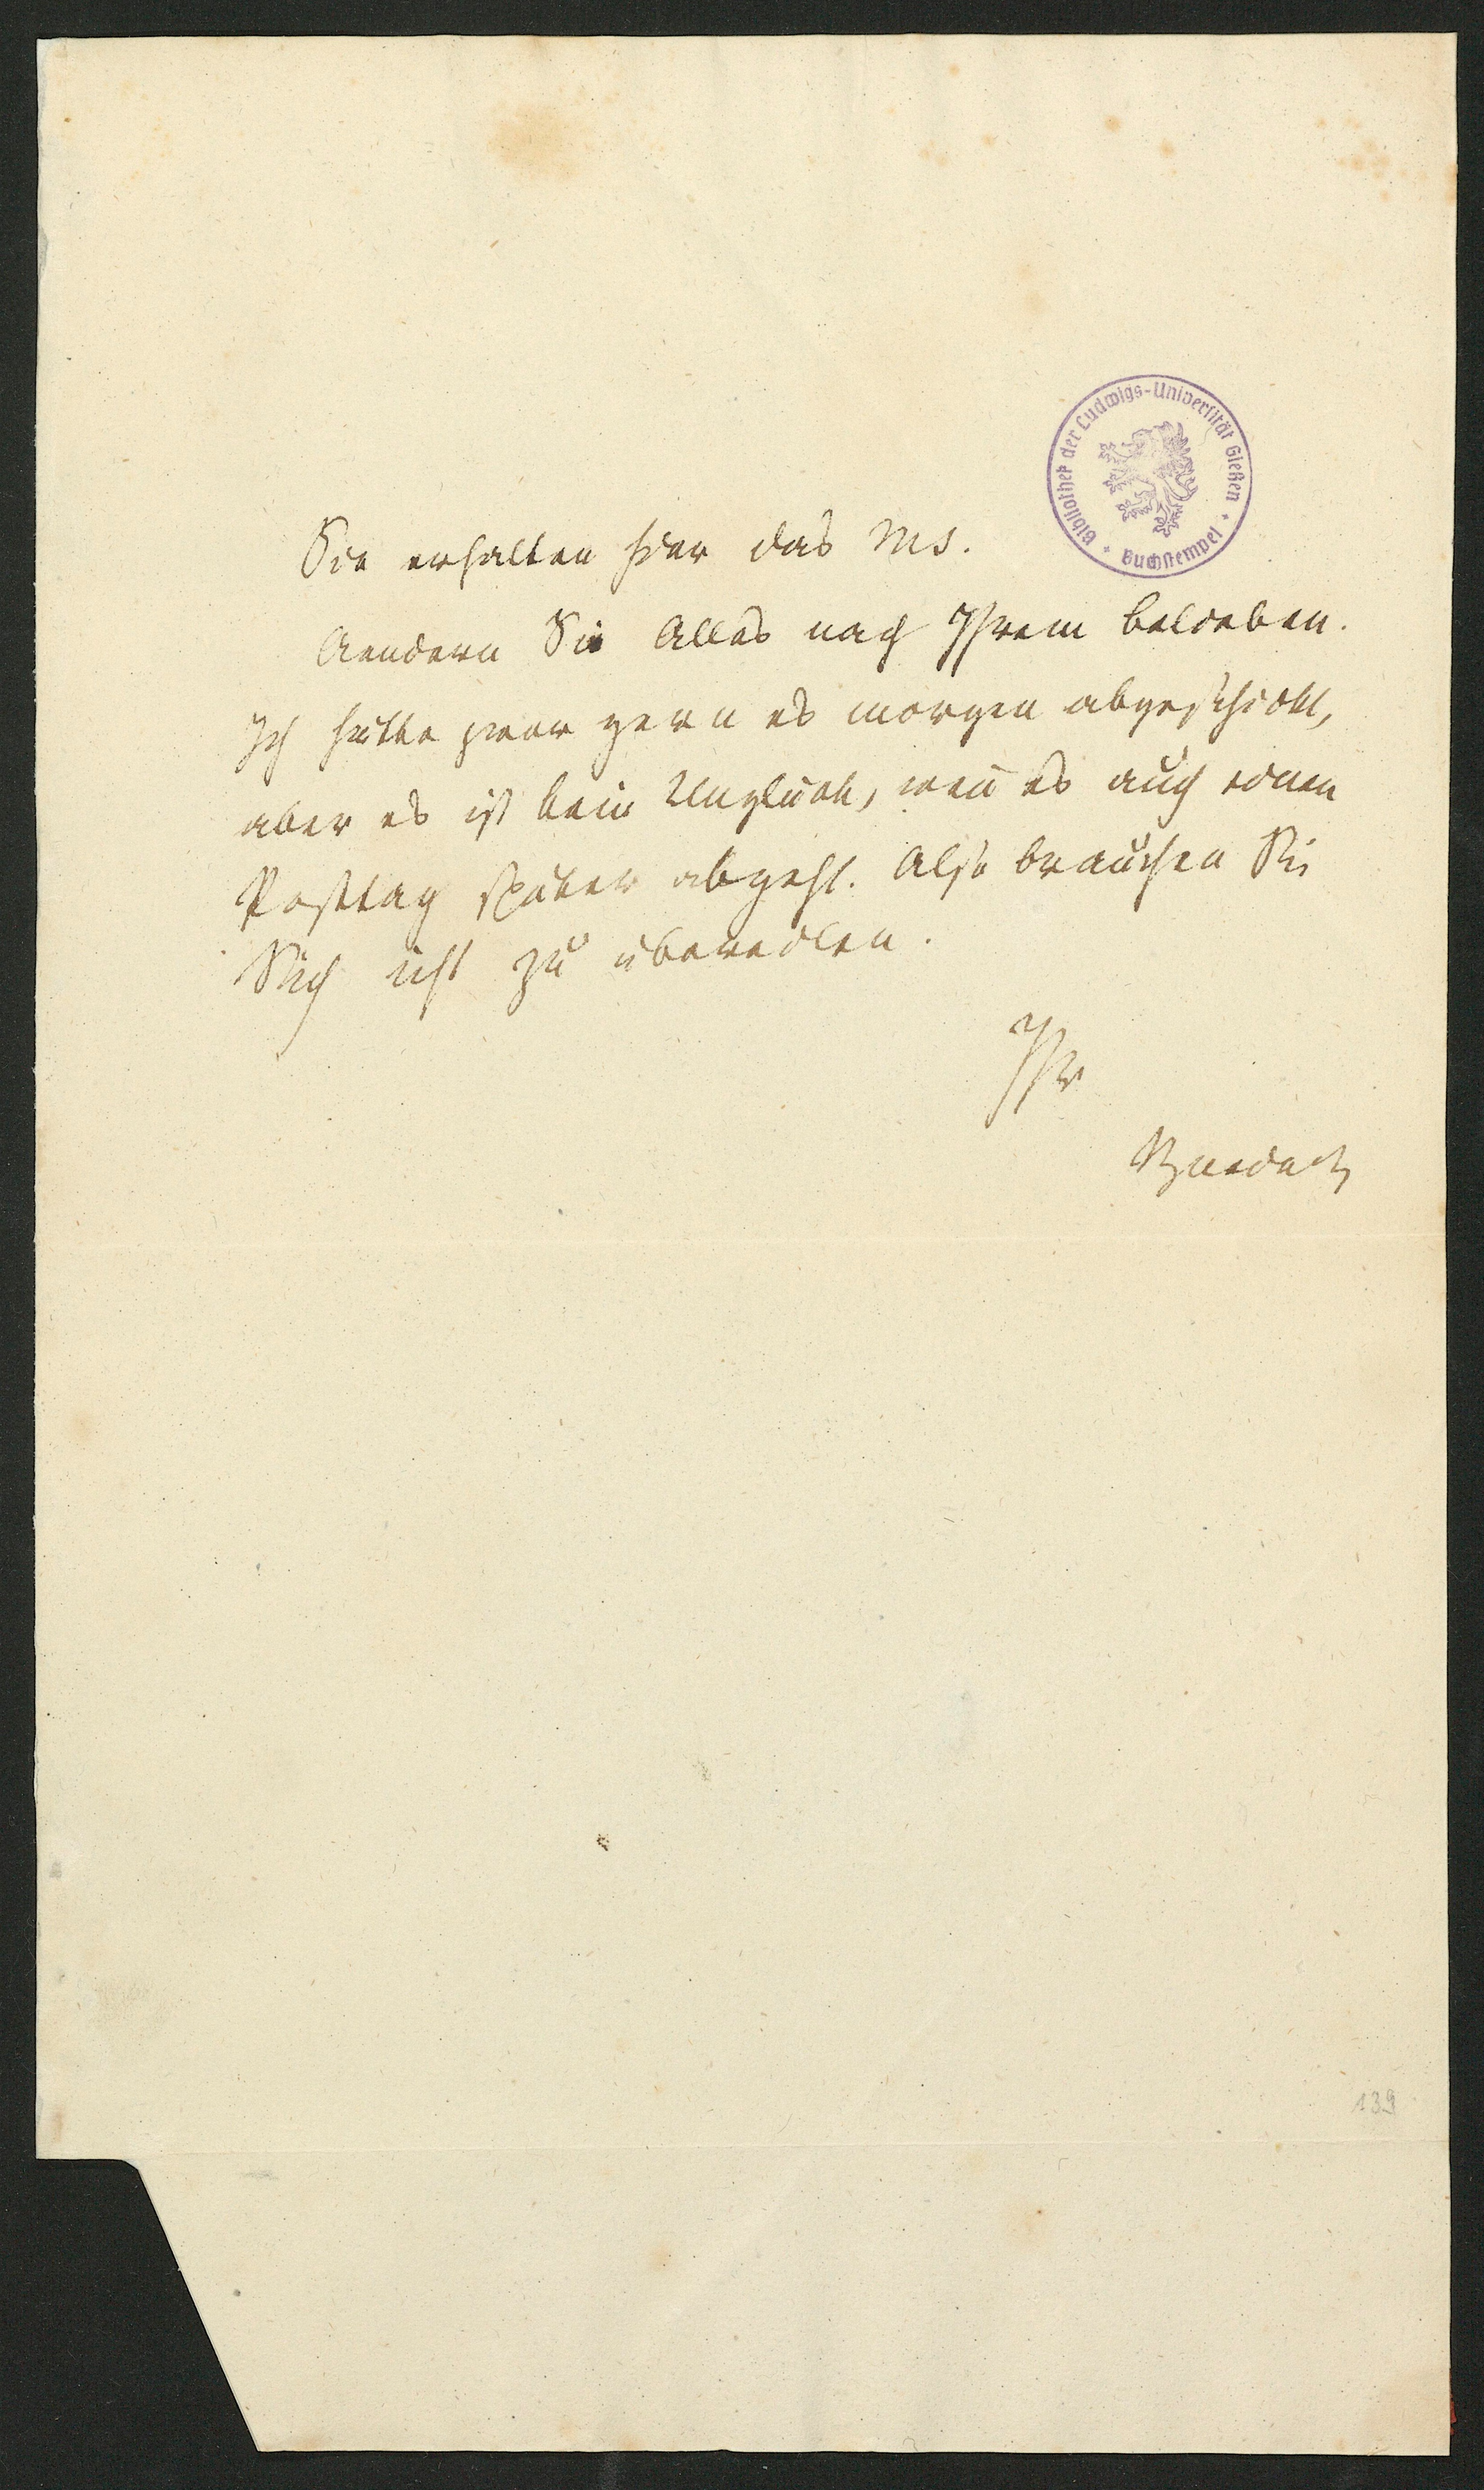 Bibliothek der Ludwigs-Universität Gießen
Buchstempel
Sie erhalten hier das Ms.
Aendern Sie Alles nach Ihrem Belieben.
Ich hätte zwar gern es morgen abgeschickt,
aber es ist kein Unglück, wen̄ es auch einen
Posttag später abgeht. Also brauchen Sie
Sich nicht zu übereilen.
Ihr
Burdach
139